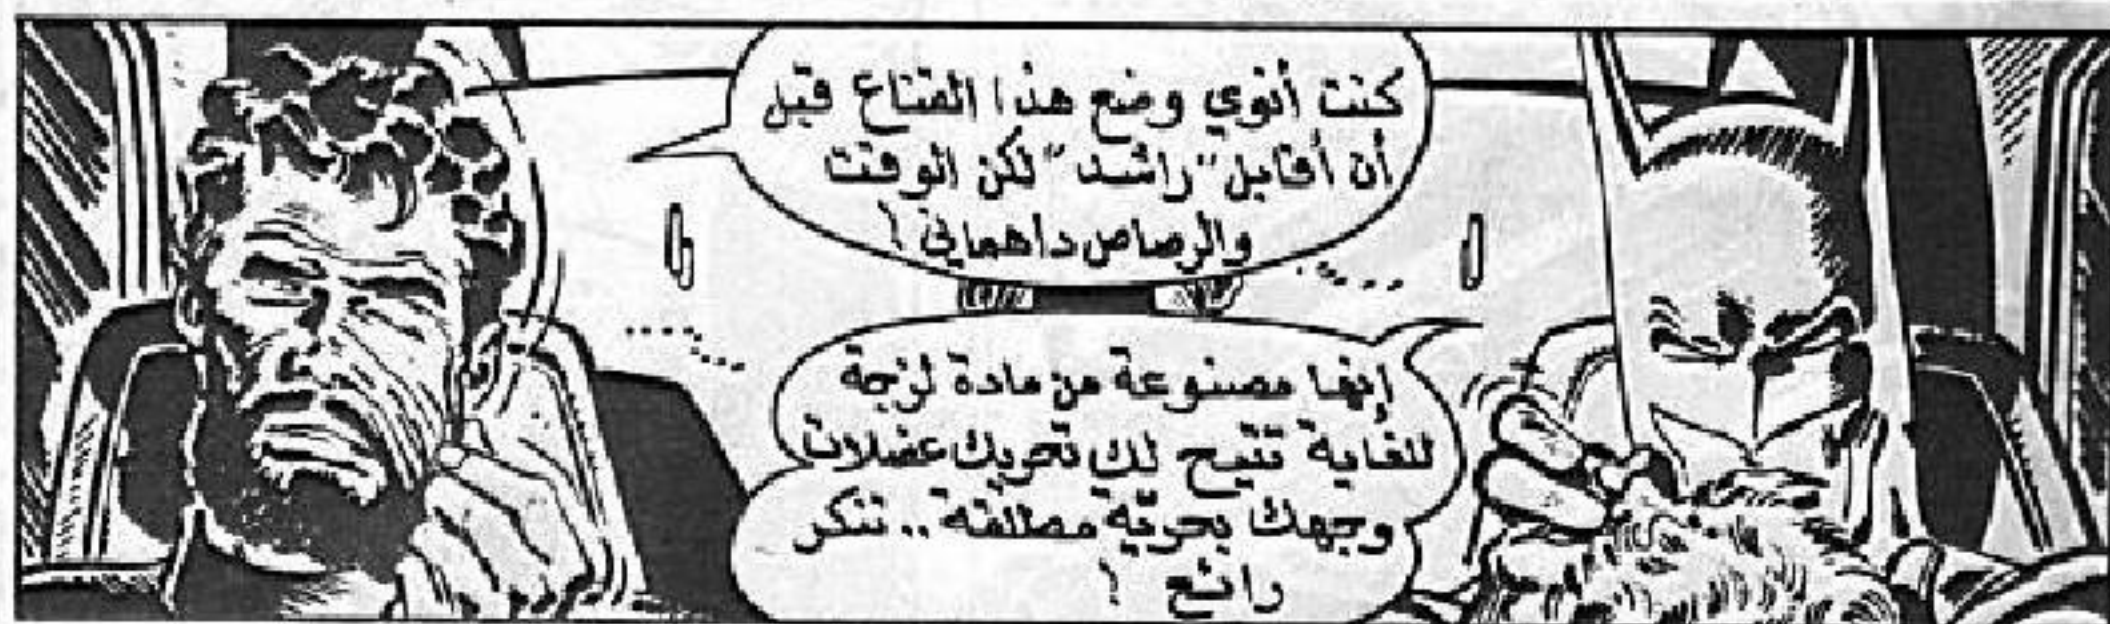 كنت أنوي وضع هذا القناع قبل
أن أقابل "راشد" لكن الوقت
والرصاص داهماني !
إنها مصنوعة من مادة لزجة
للغاية تتيح لك تحريك عضلات
وجهك بحريّة مطلقة .. تنكر
رائع !